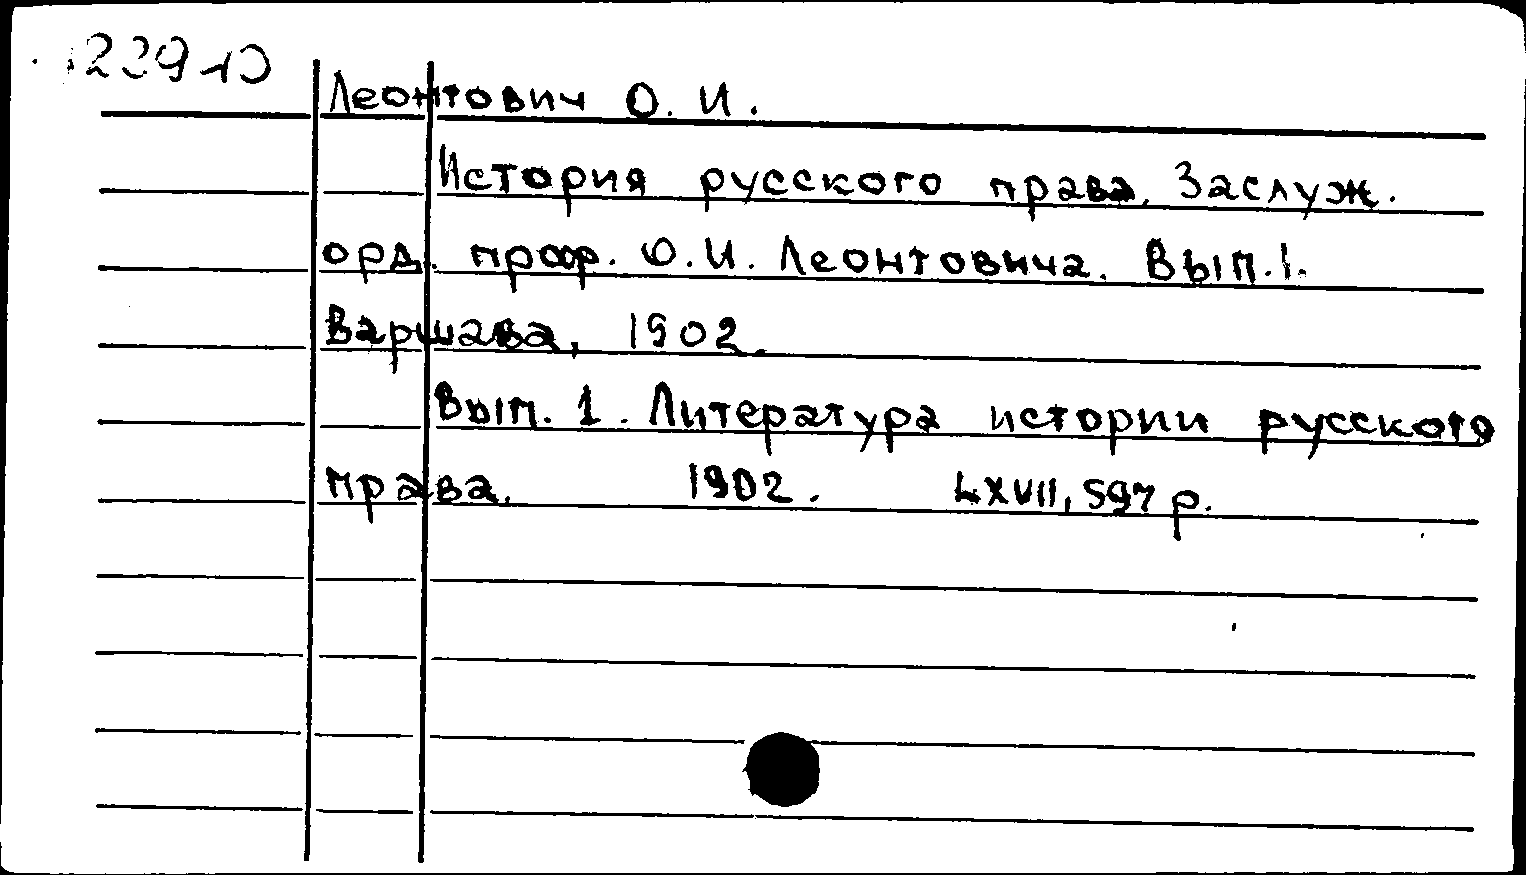 Леонтович О. И.
История русского права. Заслуж.
орд. проф. О.И. Леонтовича. Вып.1.
Варшава, 1902.
Вып. 1. Литература истории русского
права. 1902. LXVII, 597 р.